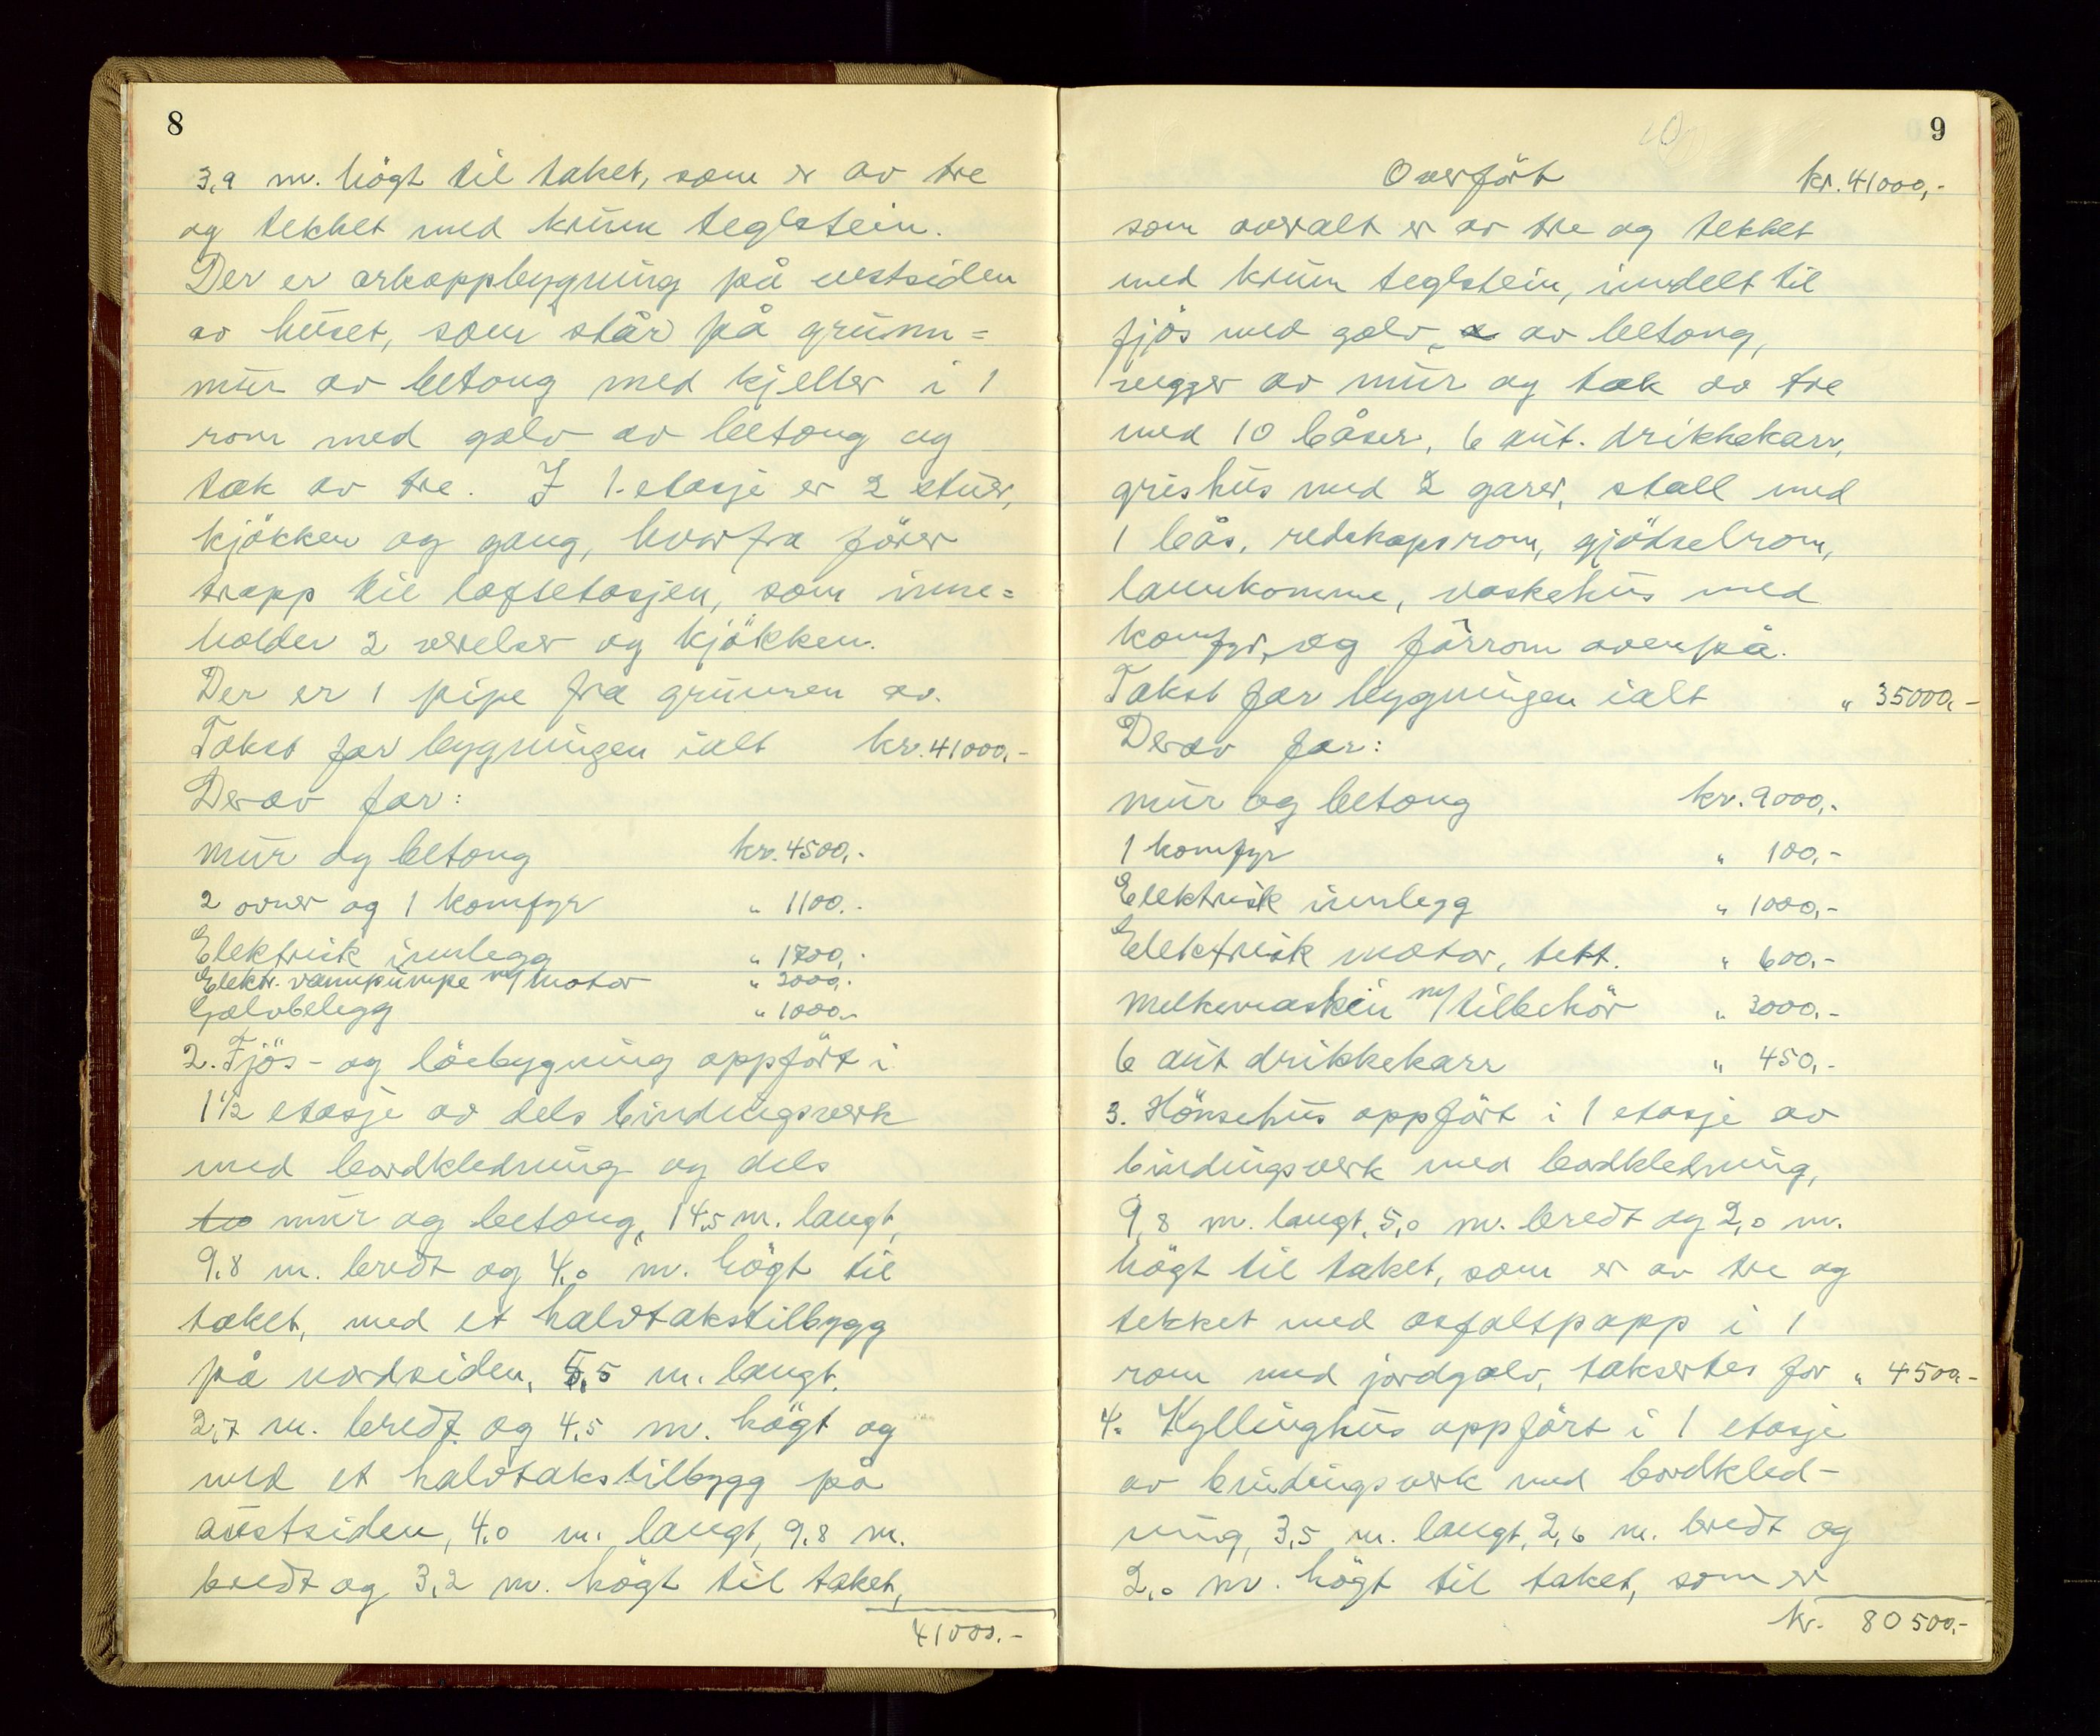 8
3,9 m. högt til taket, som er av tre
og tekket med krum teglstein.
Der er arkoppbygning på vestsiden
av huset, som står på grunn=
mur av betong med kjeller i 1
rom med golv av betong og
tak av tre. I 1. etasje er 2 stuer,
kjökken og gang, hvorfra förer
trapp til loftsetasjen, som inne=
holder 2 værelser og kjökken.
Der er 1 pipe fra grunnen av.
Takst for bygningen ialt kr. 41000,-
Derav for:
mur og betong kr. 4500,-
2 ovner og 1 komfyr " 1100.-
Elektrisk innlegg " 1700,-
Elektr. vannpumpe m/motor " 2000,-
Golvbelegg " 1000,-
2. Fjös- og löebygning oppfört i
1 1/2 etasje av dels bindingsverk
med bordkledning og dels
mur og betong, 14,5 m. langt,
9,8 m. bredt og 4,0 m. högt til
taket, med et halvtakstilbygg
på nordsiden, 5,5 m. langt,
2,7 m. bredt og 4,5 m. högt og
med et halvtakstilbygg på
austsiden, 4,0 m. langt, 9,8 m.
bredt og 3,2 m. högt til taket,
41000.-
9
Overfört kr. 41000,-
som overalt er av tre og tekket
med krum teglstein, inndelt til
fjös med golv av betong,
vegger av mur og tak av tre
med 10 båser, 6 aut. drikkekarr,
grishus med 2 garer, stall med
1 bås, redskapsrom, gjödselrom,
lannkomme, vaskehus med
komfyr, og fôrrom ovenpå.
Takst for bygningen ialt " 35000,-
Derav for:
mur og betong kr. 9000,-
1 komfyr " 100,-
Elektrisk innlegg " 1000,-
Elektrisk motor, tett. " 600,-
Melkemaskin m/tilbehör " 3000,-
6 aut drikkekarr " 450,-
3. Hönsehus oppfört i 1 etasje av
bindingsverk med bordkledning,
9,8 m. langt, 5,0 m. bredt og 2,0 m.
högt til taket, som er av tre og
tekket med asfaltpapp i 1
rom med jordgolv, taksertes for " 4500,-
4. Kyllinghus oppfört i 1 etasje
av bindingsverk med bordkled-
ning, 3,5 m. langt, 2,6 m. bredt og
2,0 m. högt til taket, som er
kr. 80500,-